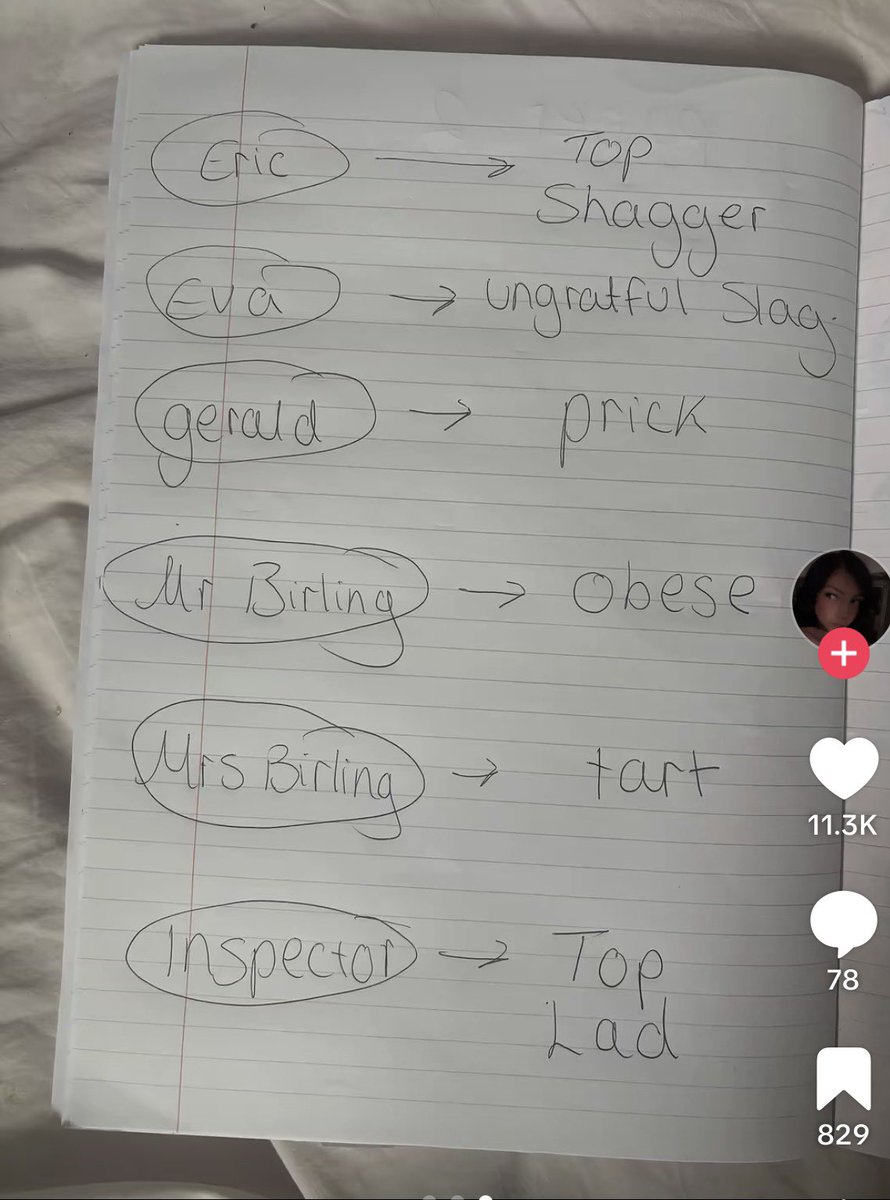 Eric → Top
Shagger
Eva → ungratful Slag.
gerald → prick
Mr Birling → obese
Mrs Birling → tart
Inspector → Top
Lad
11.3K
78
829